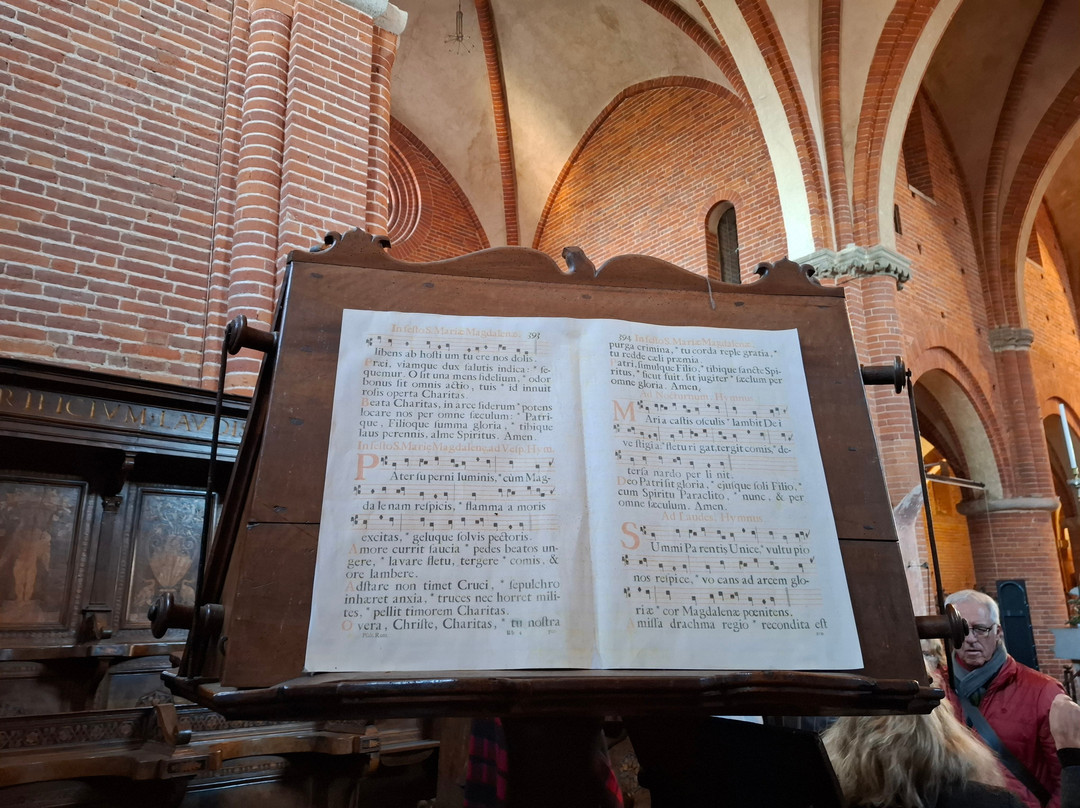 RIFICIVM LAVDI
In festo S. Mariæ Magdalenæ. 393
libens ab hosti um tu ere nos dolis.
Præi, viamque dux salutis indica: * se-
quemur. O sit una mens fidelium, * odor
bonus sit omnis actio, tuis * id innuit
rosis operta Charitas.
Beata Charitas, in arce siderum * potens
locare nos per omne sæculum: * Patri-
que, Filioque summa gloria, * tibique
laus perennis, alme Spiritus. Amen.
In festo S. Mariæ Magdalenæ, ad Vesp. Hym.
PAter su perni luminis, * cùm Mag-
da le nam respicis, * flamma a moris
excitas, * geluque solvis pectoris.
Amore currit saucia * pedes beatos un-
gere, * lavare fletu, tergere * comis, &
ore lambere.
Adstare non timet Cruci, * sepulchro
inhæret anxia, * truces nec horret mili-
tes, * pellit timorem Charitas.
O vera, Christe, Charitas, * tu nostra
394 In festo S. Mariæ Magdalenæ
purga crimina, * tu corda reple gratia, *
tu redde cæli præmia.
Patri, simulque Filio, * tibique sancte Spi-
ritus, * sicut fuit, sit jugiter * sæclum per
omne gloria. Amen.
Ad Nocturnum, Hymnus.
MAria castis osculis * lambit De i
ve stigia: * fletu ri gat, tergit comis, * de-
tersa nardo per li nit.
Deo Patri sit gloria, * ejusque soli Filio, *
cum Spiritu Paraclito, * nunc, & per
omne sæculum. Amen.
Ad Laudes, Hymnus.
SUmmi Pa rentis Unice, * vultu pio
nos respice, * vo cans ad arcem glo-
riæ * cor Magdalenæ pœnitens.
Amissa drachma regio * recondita est